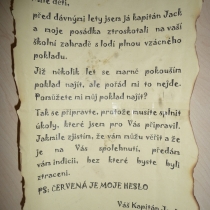 děti,
před dávnými lety jsem já kapitán Jack
a moje posádka ztroskotali na vaší
školní zahradě s lodí plnou vzácného
pokladu.
Již několik let se marně pokouším
poklad najít, ale pořád mi to nejde.
Pomůžete mi můj poklad najít?
Tak se připravte, protože musíte splnit
úkoly, které jsem pro Vás připravil.
Jakmile zjistím, že vám můžu věřit a že
je na Vás spolehnutí, předám
vám indicii, bez které byste byli
ztraceni.
PS: ČERVENÁ JE MOJE HESLO
Váš Kapitán